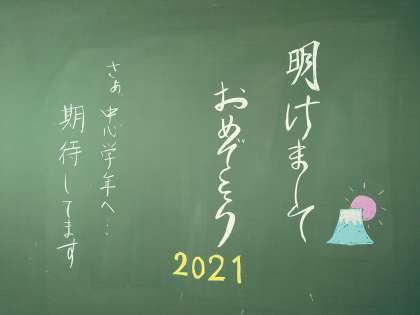 明けまして
おめでとう
2021
さぁ 中心学年へ…
期待してます